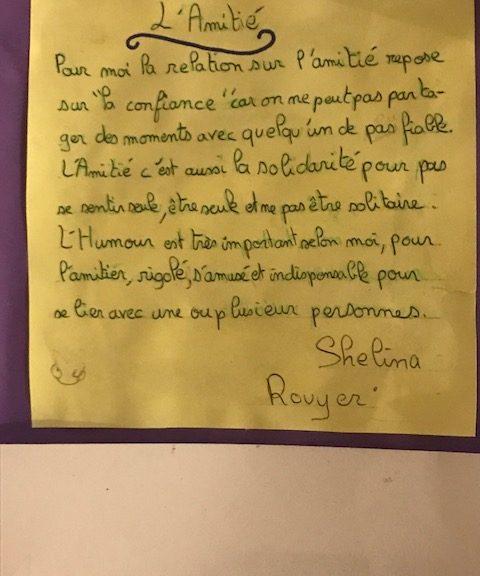 L'Amitié
Pour moi la relation sur l'amitié repose
sur "la confiance" car on ne peut pas parta-
ger des moments avec quelqu'un de pas fiable.
L'Amitié c'est aussi la solidarité pour pas
se sentir seule, être seule et ne pas être solitaire.
L'Humour est très important selon moi, pour
l'amitier, rigolé, s'amusé et indispensable pour
se lier avec une ou plusieur personnes.
Shelina
Rouyer